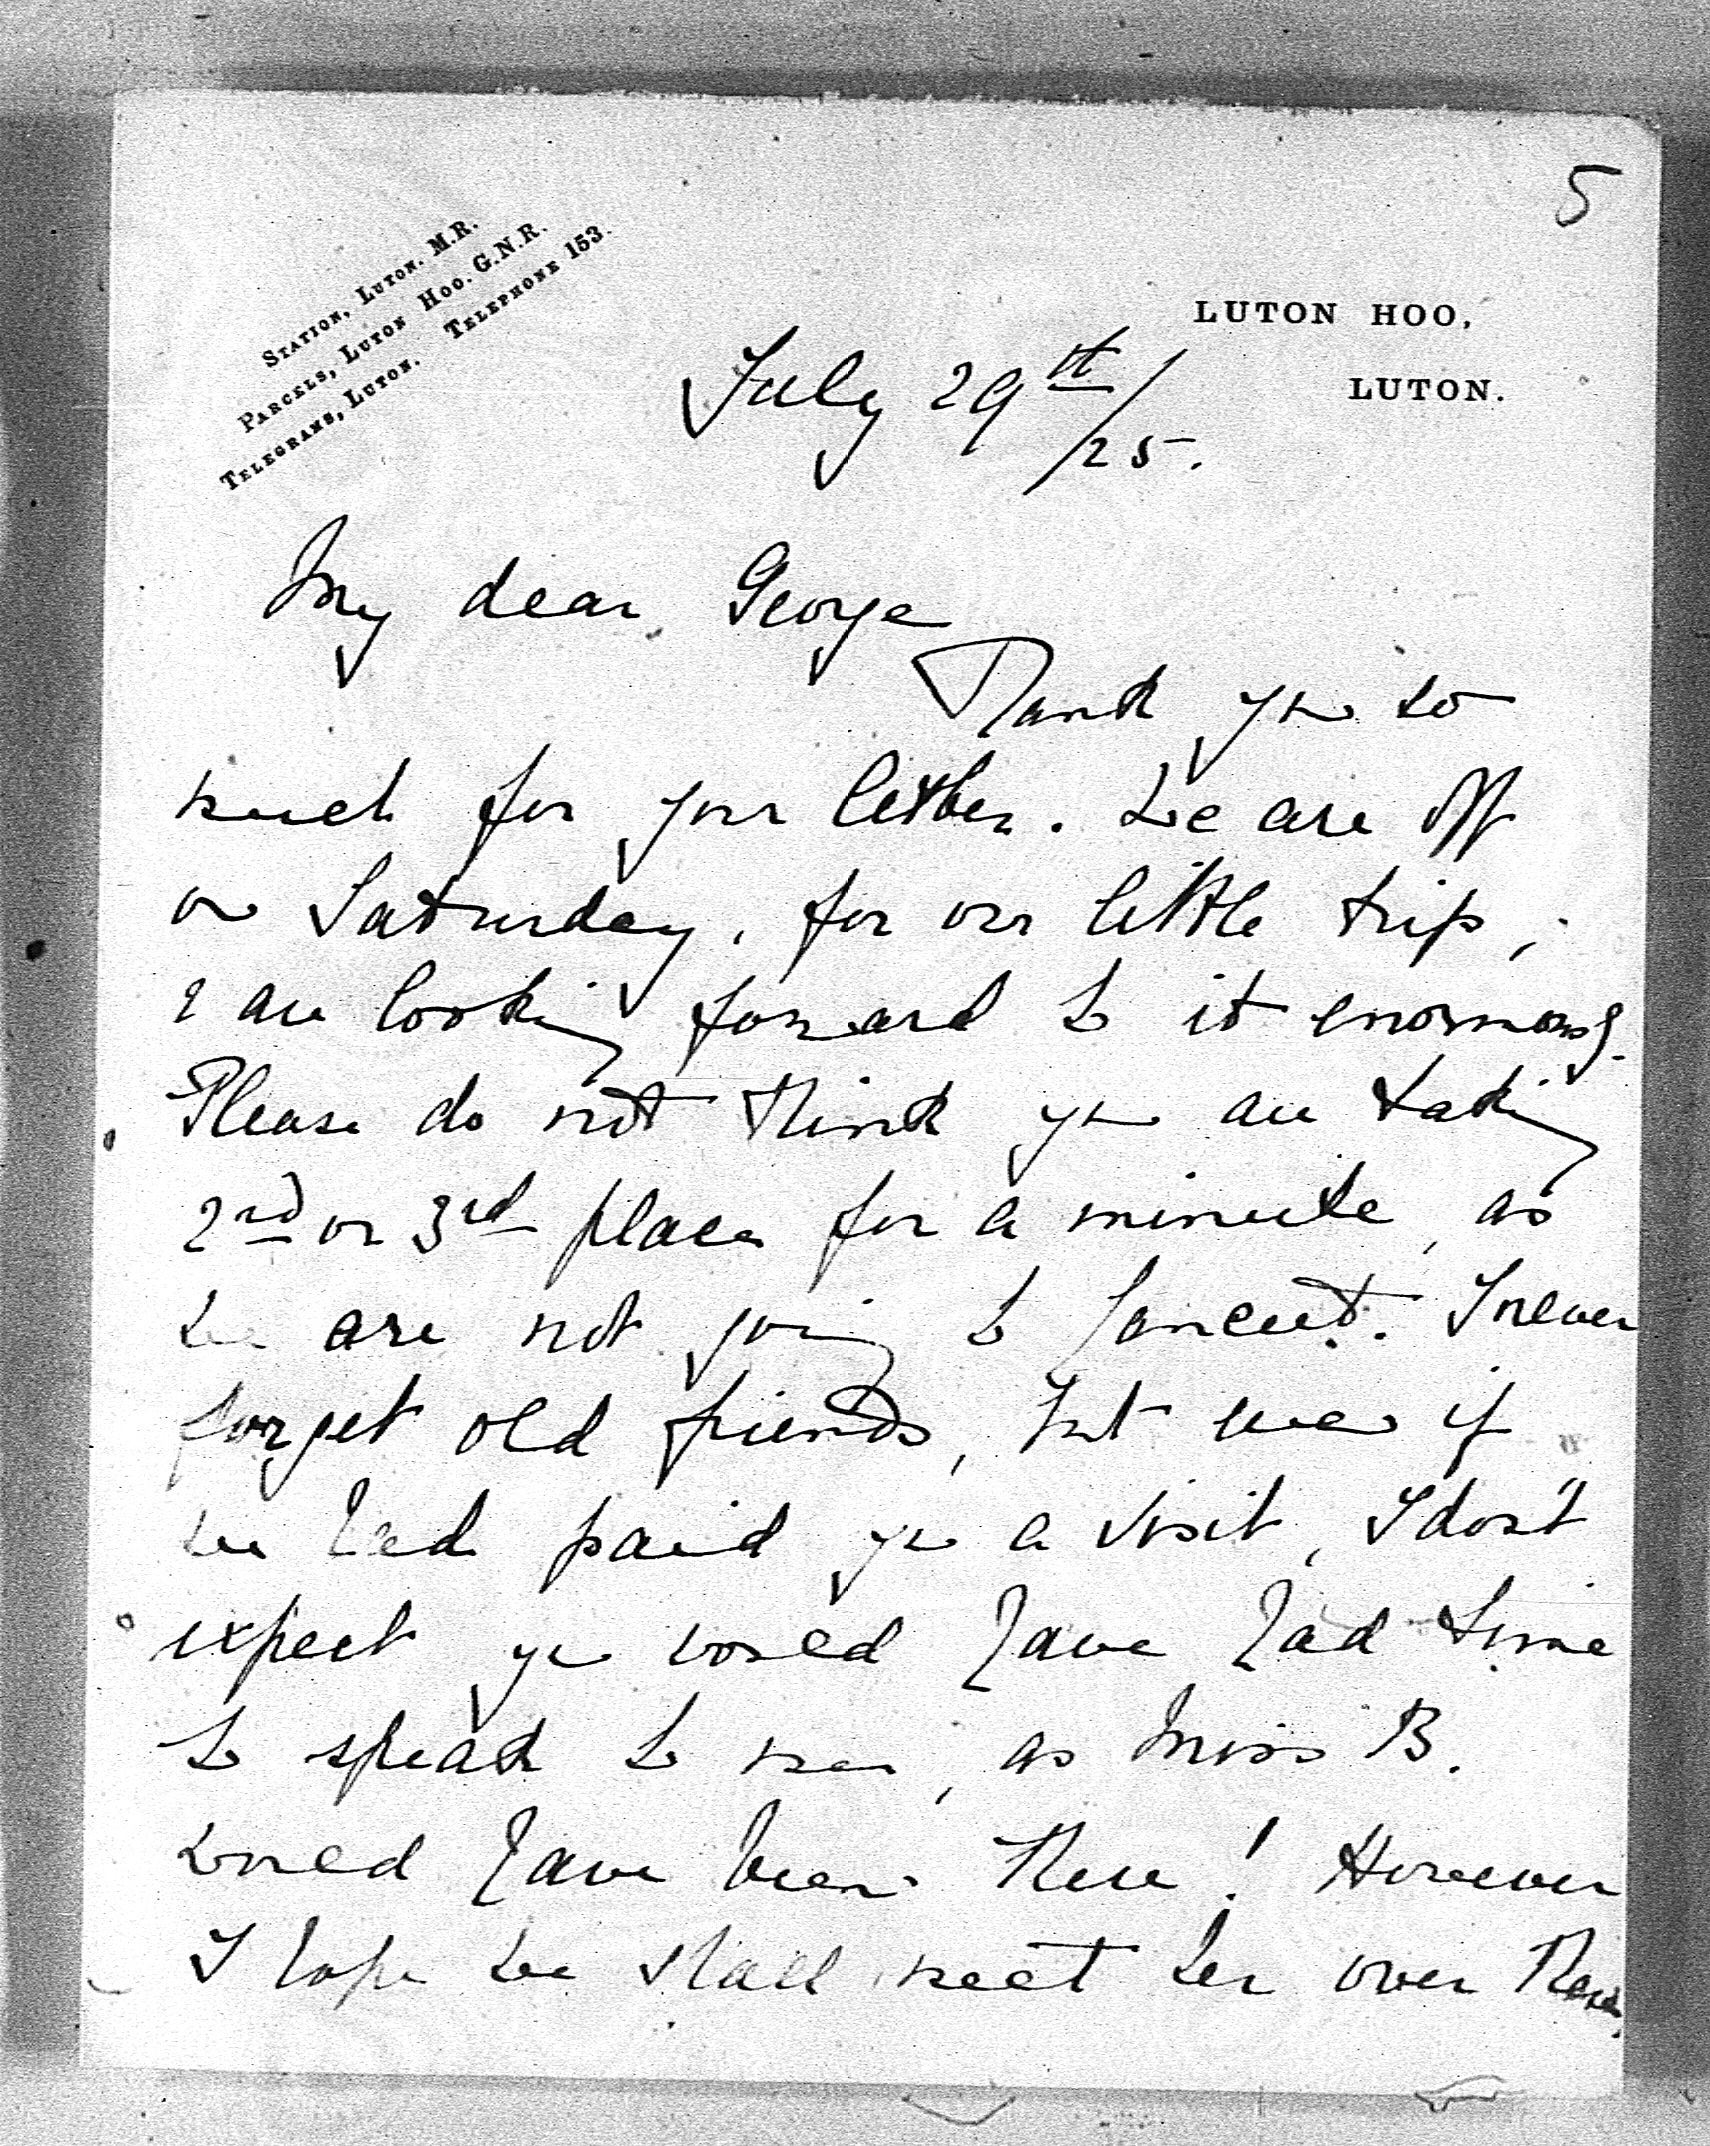 5
STATION, LUTON. M.R.
PARCELS, LUTON HOO. G.N.R.
TELEGRAMS, LUTON. TELEPHONE 153.
LUTON HOO,
LUTON.
July 29th/25.
My dear George
Thank you so
much for your letter. We are off
on Saturday, for our little trip,
& are looking forward to it enormously.
Please do not think you are taking
2nd or 3rd place for a minute, as
we are not going to . I never
forget old friends, but even if
we had paid you a visit, I don't
expect you would have had time
to speak to me, as Miss B.
would have been there! However
I hope we shall meet her over there.